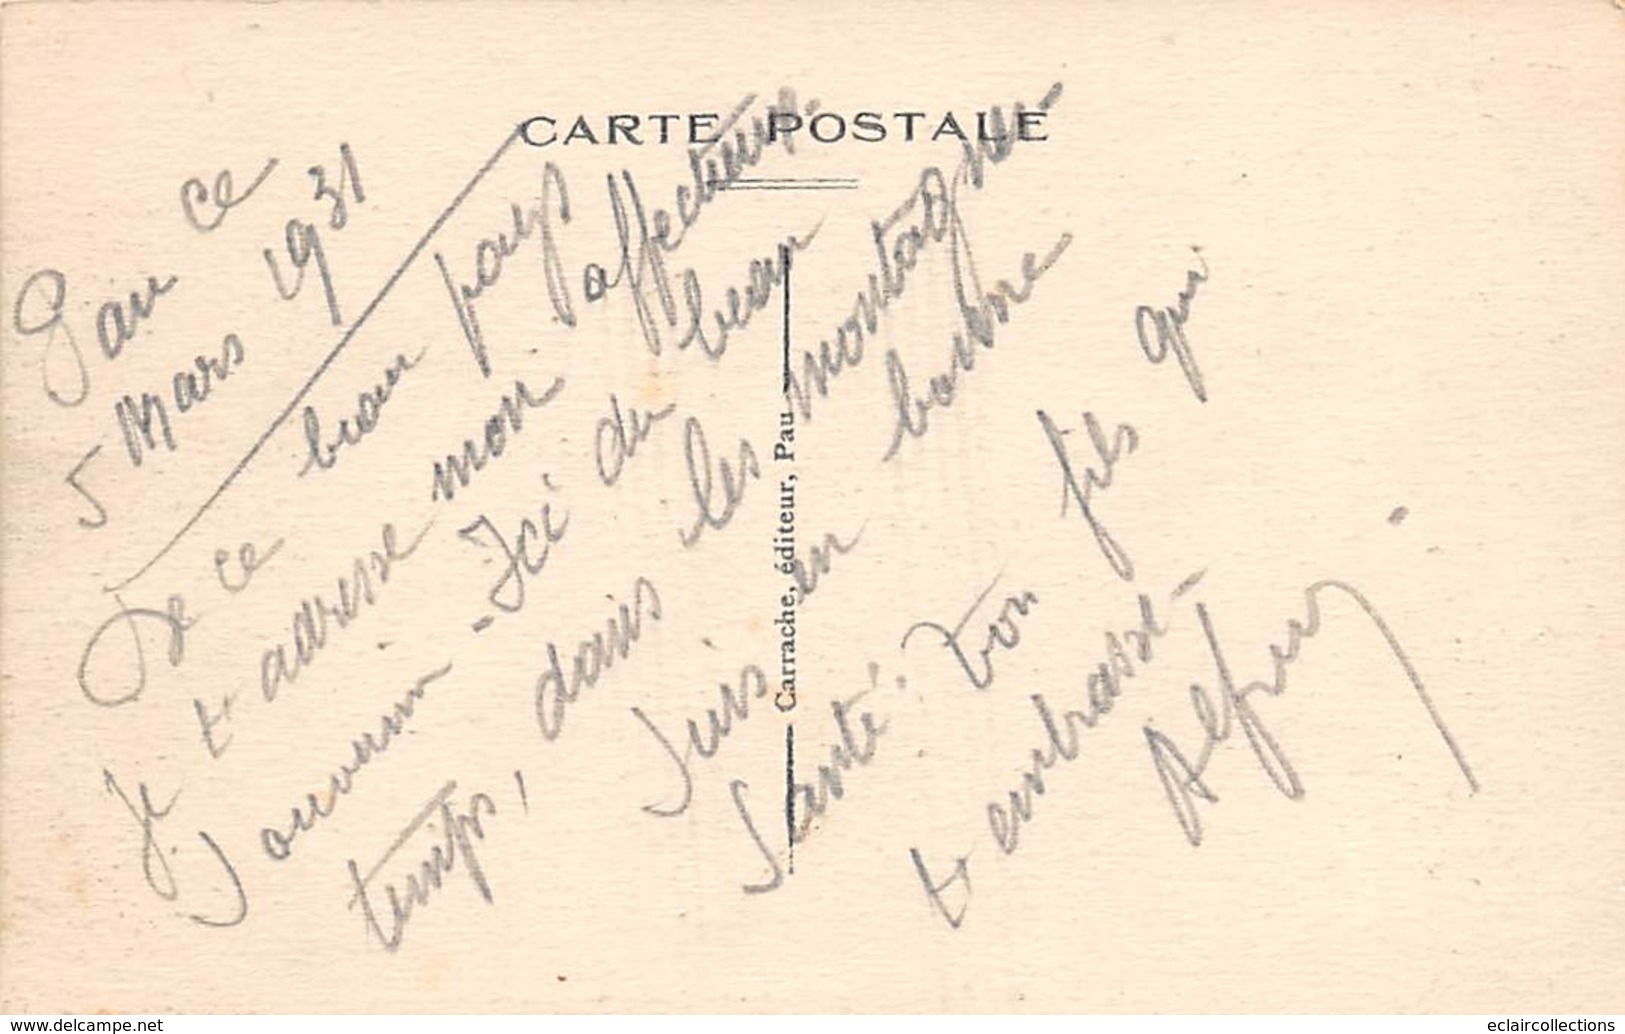 CARTE POSTALE
Gan ce
5 Mars 1931
De ce beau pays
je t adresse mon affectueux
souvenir - Ici du beau
temps, dans les montagnes -
suis en bonne
santé. Ton fils qui
t embrasse -
Alfred
Carrache, éditeur, Pau
www.delcampe.net
eclaircollections